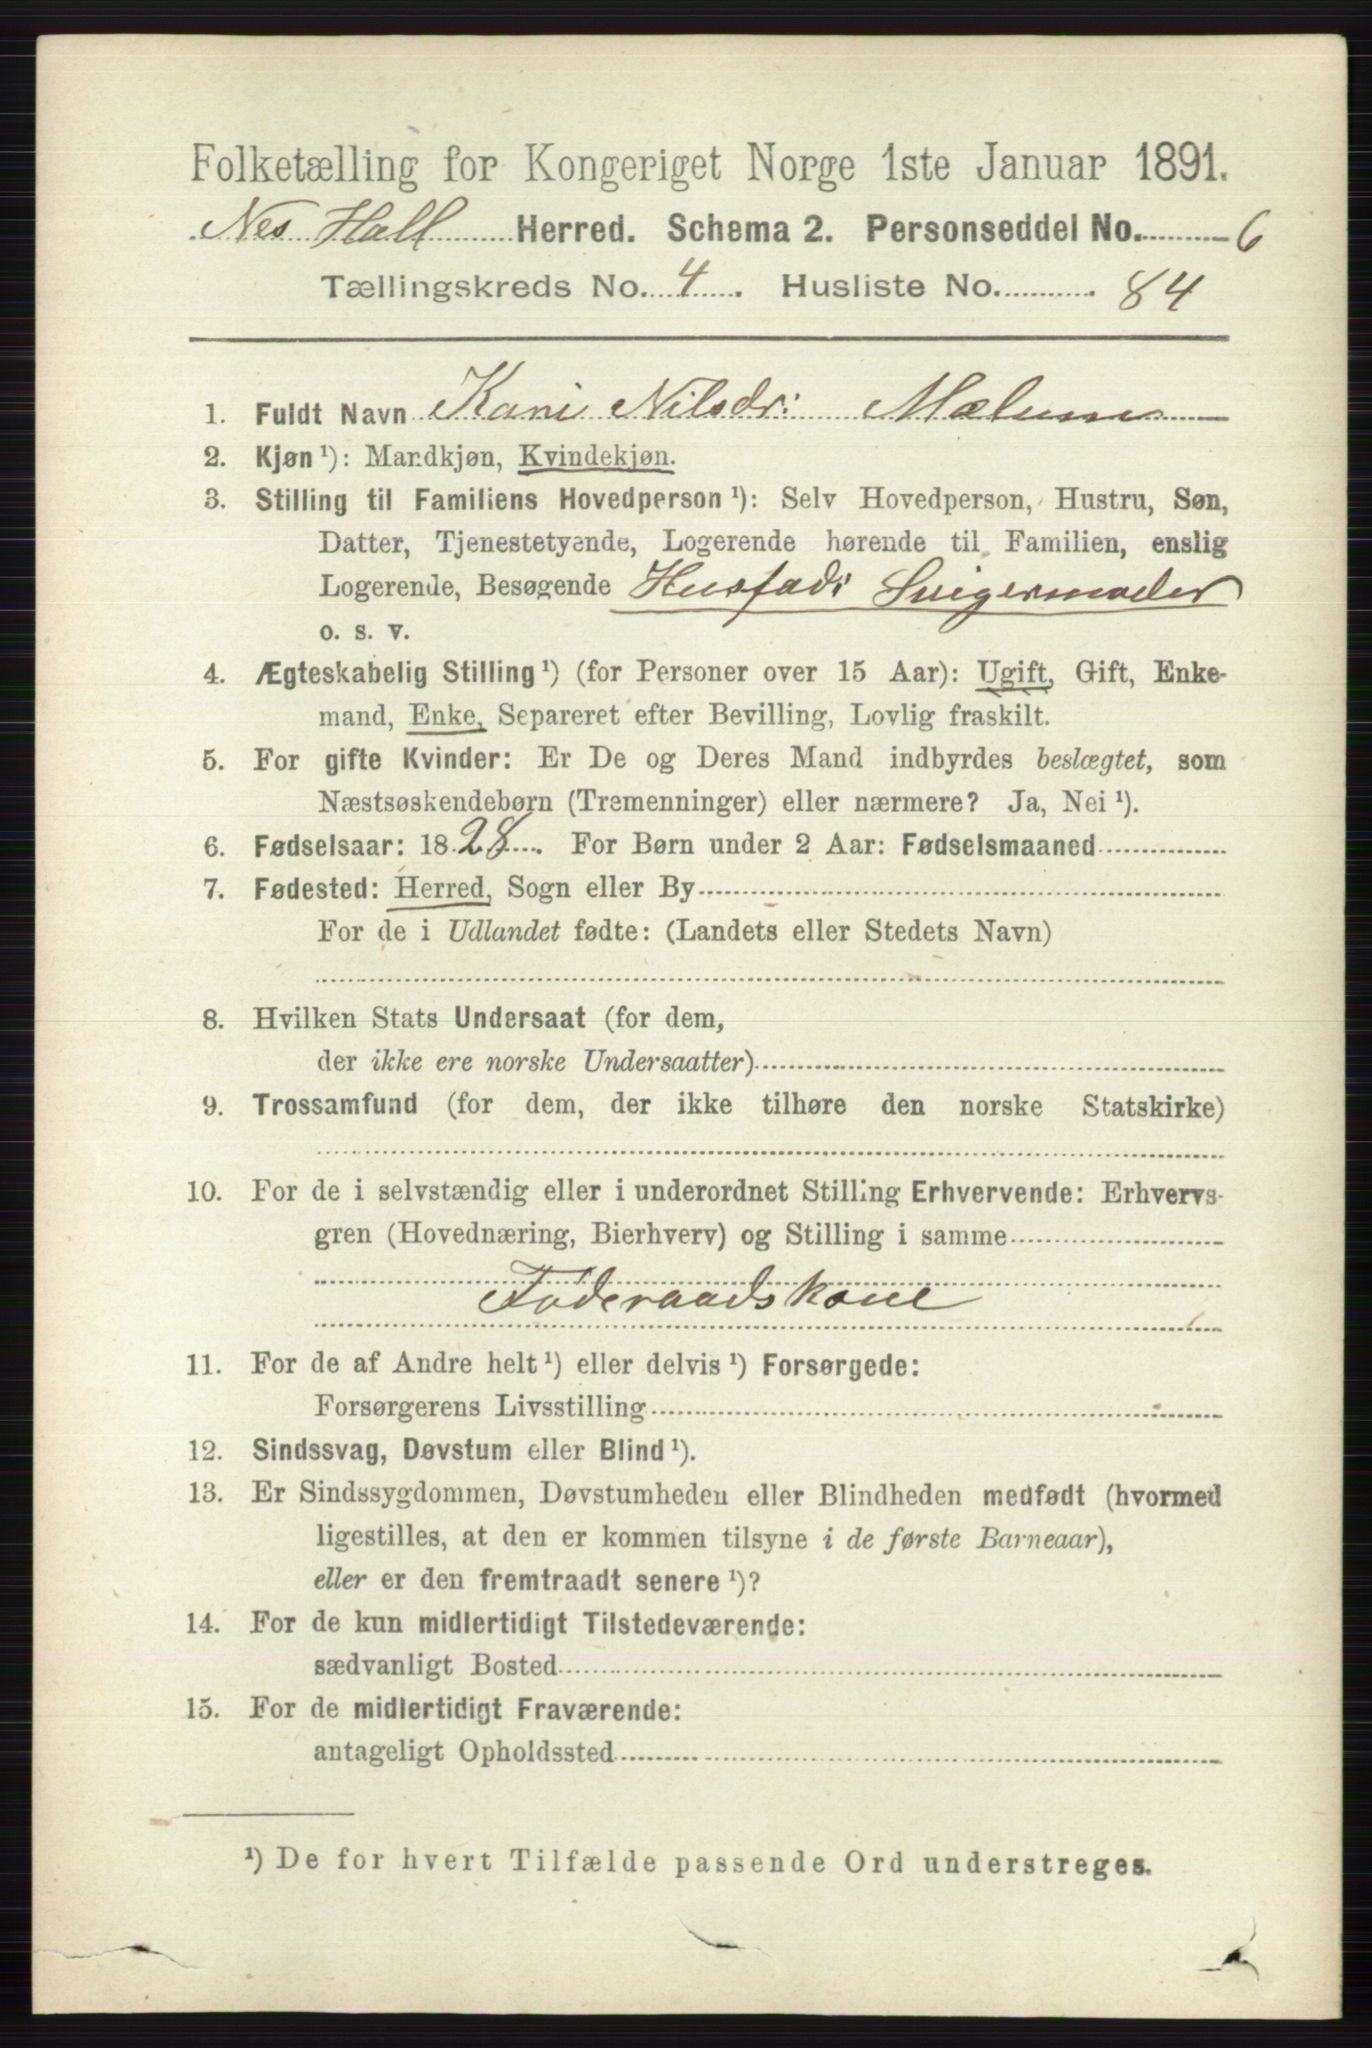 Folketælling for Kongeriget Norge 1ste Januar 1891.
Nes Hall Herred. Schema 2. Personseddel No. 6
Tællingskreds No. 4. Husliste No. 84
1. Fuldt Navn Kari Nilsdr: Mælum
2. Kjøn ¹): Mandkjøn, Kvindekjøn.
3. Stilling til Familiens Hovedperson ¹): Selv Hovedperson, Hustru, Søn,
Datter, Tjenestetyende, Logerende hørende til Familien, enslig
Logerende, Besøgende Husfads Svigermoder
o. s. v.
4. Ægteskabelig Stilling ¹) (for Personer over 15 Aar): Ugift, Gift, Enke-
mand, Enke, Separeret efter Bevilling, Lovlig fraskilt.
5. For gifte Kvinder: Er De og Deres Mand indbyrdes beslægtet, som
Næstsøskendebørn (Tremenninger) eller nærmere? Ja, Nei ¹).
6. Fødselsaar: 1828. For Børn under 2 Aar: Fødselsmaaned
7. Fødested: Herred, Sogn eller By
For de i Udlandet fødte: (Landets eller Stedets Navn)
8. Hvilken Stats Undersaat (for dem,
der ikke ere norske Undersaatter)
9. Trossamfund (for dem, der ikke tilhøre den norske Statskirke)
10. For de i selvstændig eller i underordnet Stilling Erhvervende: Erhvervs-
gren (Hovednæring, Bierhverv) og Stilling i samme
Føderaadskone
11. For de af Andre helt ¹) eller delvis ¹) Forsørgede:
Forsørgerens Livsstilling
12. Sindssvag, Døvstum eller Blind ¹).
13. Er Sindssygdommen, Døvstumheden eller Blindheden medfødt (hvormed
ligestilles, at den er kommen tilsyne i de første Barneaar),
eller er den fremtraadt senere ¹)?
14. For de kun midlertidigt Tilstedeværende:
sædvanligt Bosted
15. For de midlertidigt Fraværende:
antageligt Opholdssted
¹) De for hvert Tilfælde passende Ord understreges.